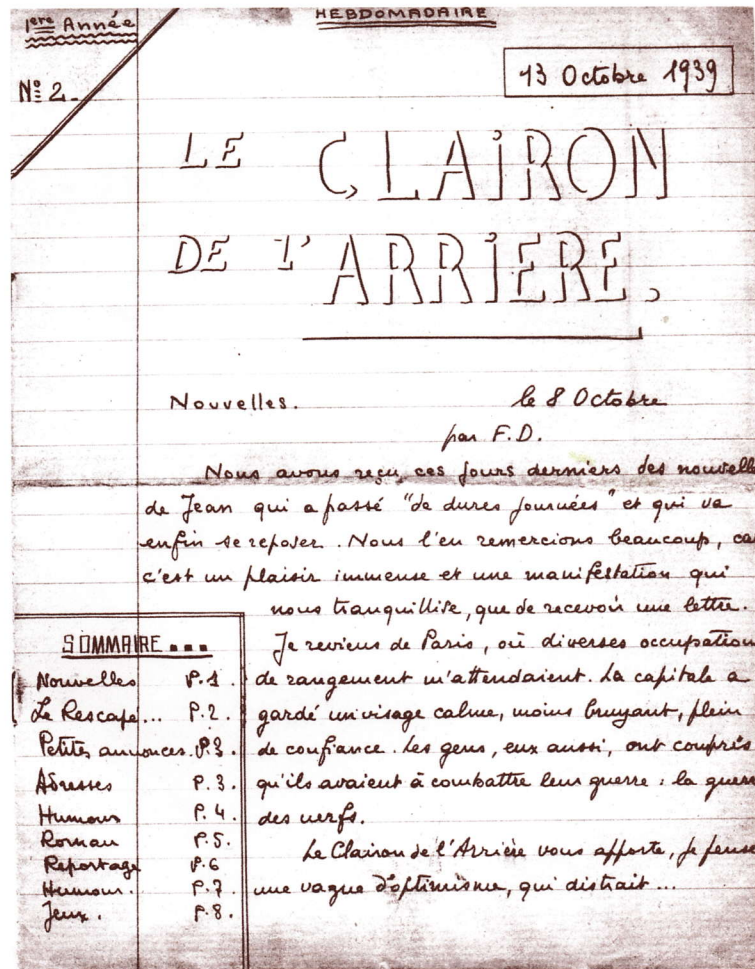 1ère Année
HEBDOMADAIRE
N° 2.
13 Octobre 1939
LE CLAIRON
DE L'ARRIERE.
Nouvelles. le 8 Octobre
par F.D.
Nous avons reçu ces jours derniers des nouvelle
de Jean qui a passé "de dures journées" et qui va
enfin se reposer. Nous l'en remercions beaucoup, ca
c'est un plaisir immense et une manifestation qui
nous tranquillise, que de recevoir une lettre.
Je reviens de Paris, où diverses occupation
de rangement m'attendaient. La capitale a
gardé un visage calme, moins bruyant, plein
de confiance. Les gens, eux aussi, ont compris
qu'ils avaient à combattre leur guerre : la guer
des nerfs.
Le Clairon de l'Arrière vous apporte, je pense
une vague d'optimisme, qui distrait...
SOMMAIRE...
Nouvelles P.1.
Le Rescapé... P.2.
Petites annonces. P.3.
Adresses P.3.
Humour P.4.
Roman P.5.
Reportage P.6
Humour. P.7.
Jeux. P.8.